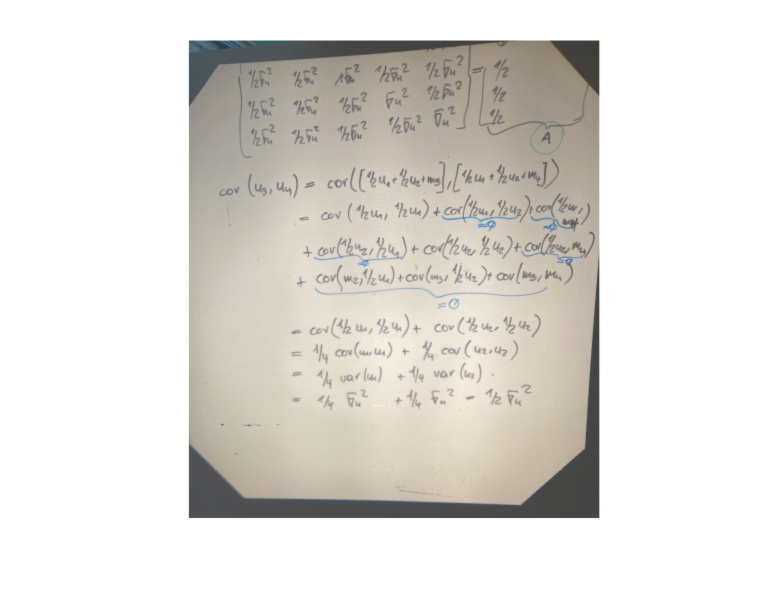 ½σu² ½σu² 1σu² ½σu² ½σu² = ½
½σu² ½σu² ½σu² σu² ½σu² ½
½σu² ½σu² ½σu² ½σu² σu² ½
A
cov (u3, u4) = cov([½u1+½u2+m3],[½u1+½u2+m4])
= cov (½u1, ½u1) + cov(½u1, ½u2) + cov(½u1, m4)
=0 =0
+ cov(½u2, ½u1) + cov(½u2, ½u2) + cov(½u2, m4)
=0 =0
+ cov(m3, ½u1) + cov(m3, ½u2) + cov(m3, m4)
=0
= cov(½u1, ½u1) + cov(½u2, ½u2)
= ¼ cov(u1,u1) + ¼ cov(u2,u2)
= ¼ var(u1) + ¼ var(u2)
= ¼ σu² + ¼ σu² = ½ σu²